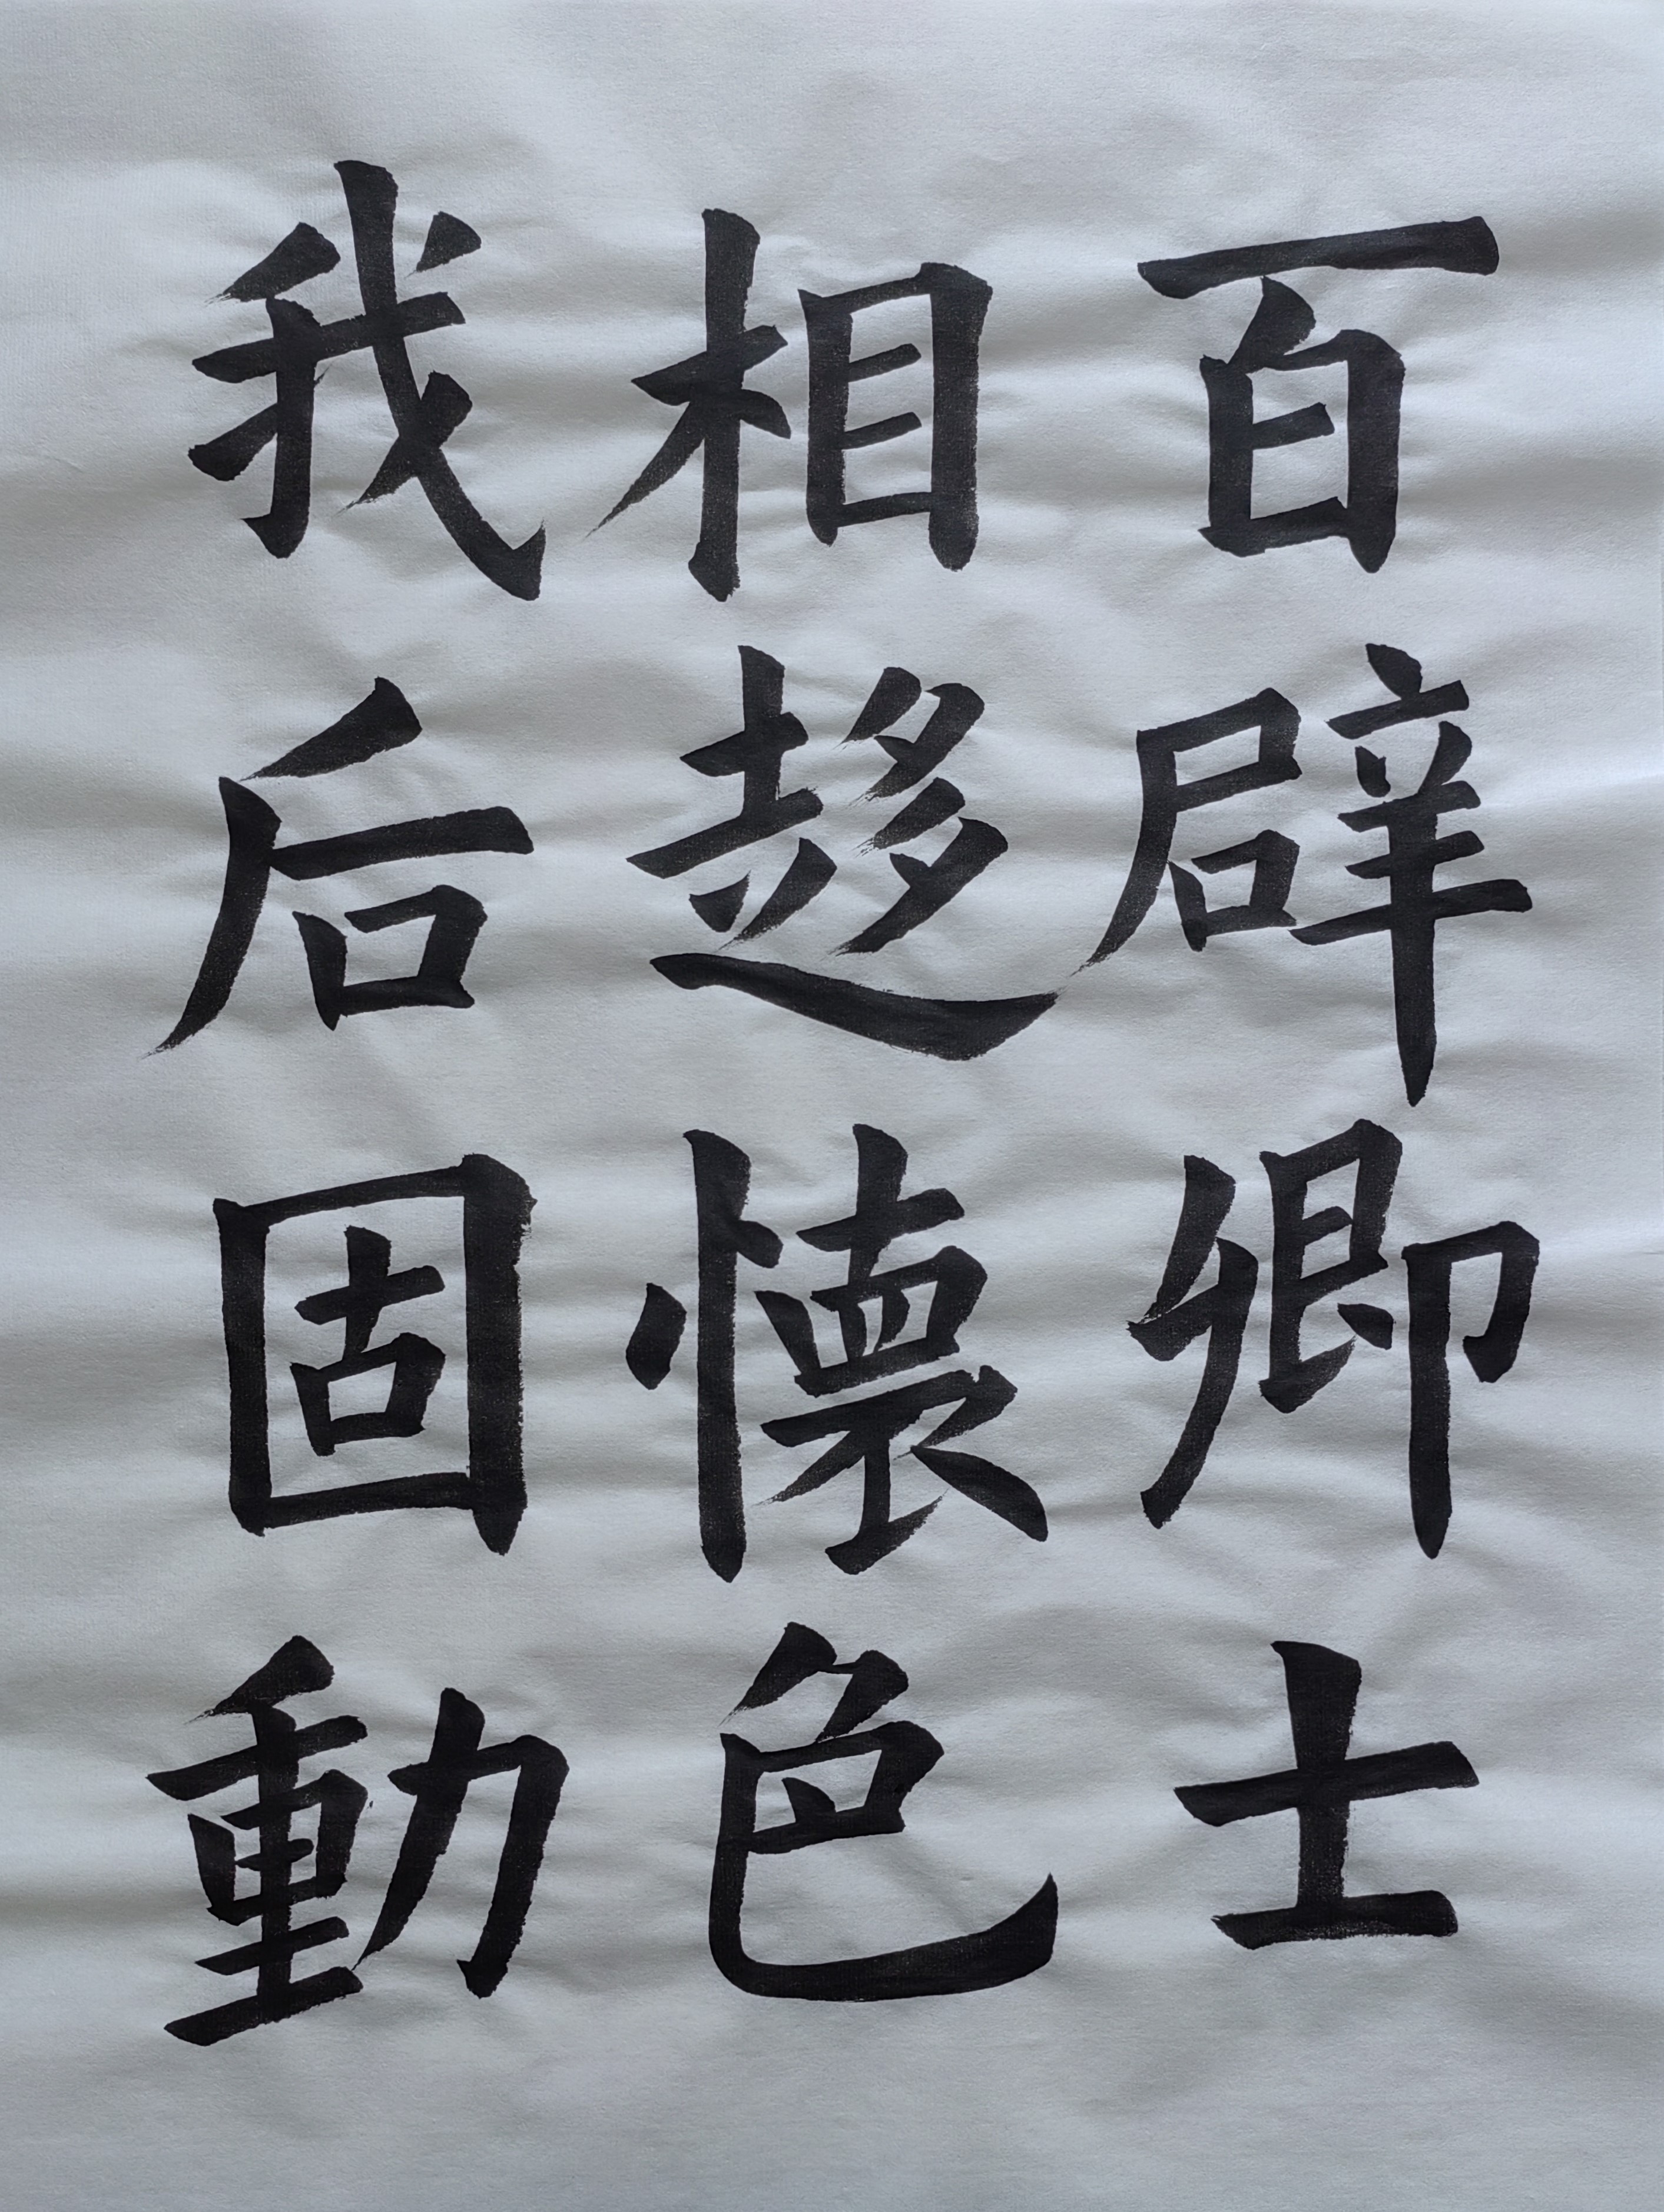 百辟卿士
相趍懐色
我后固動